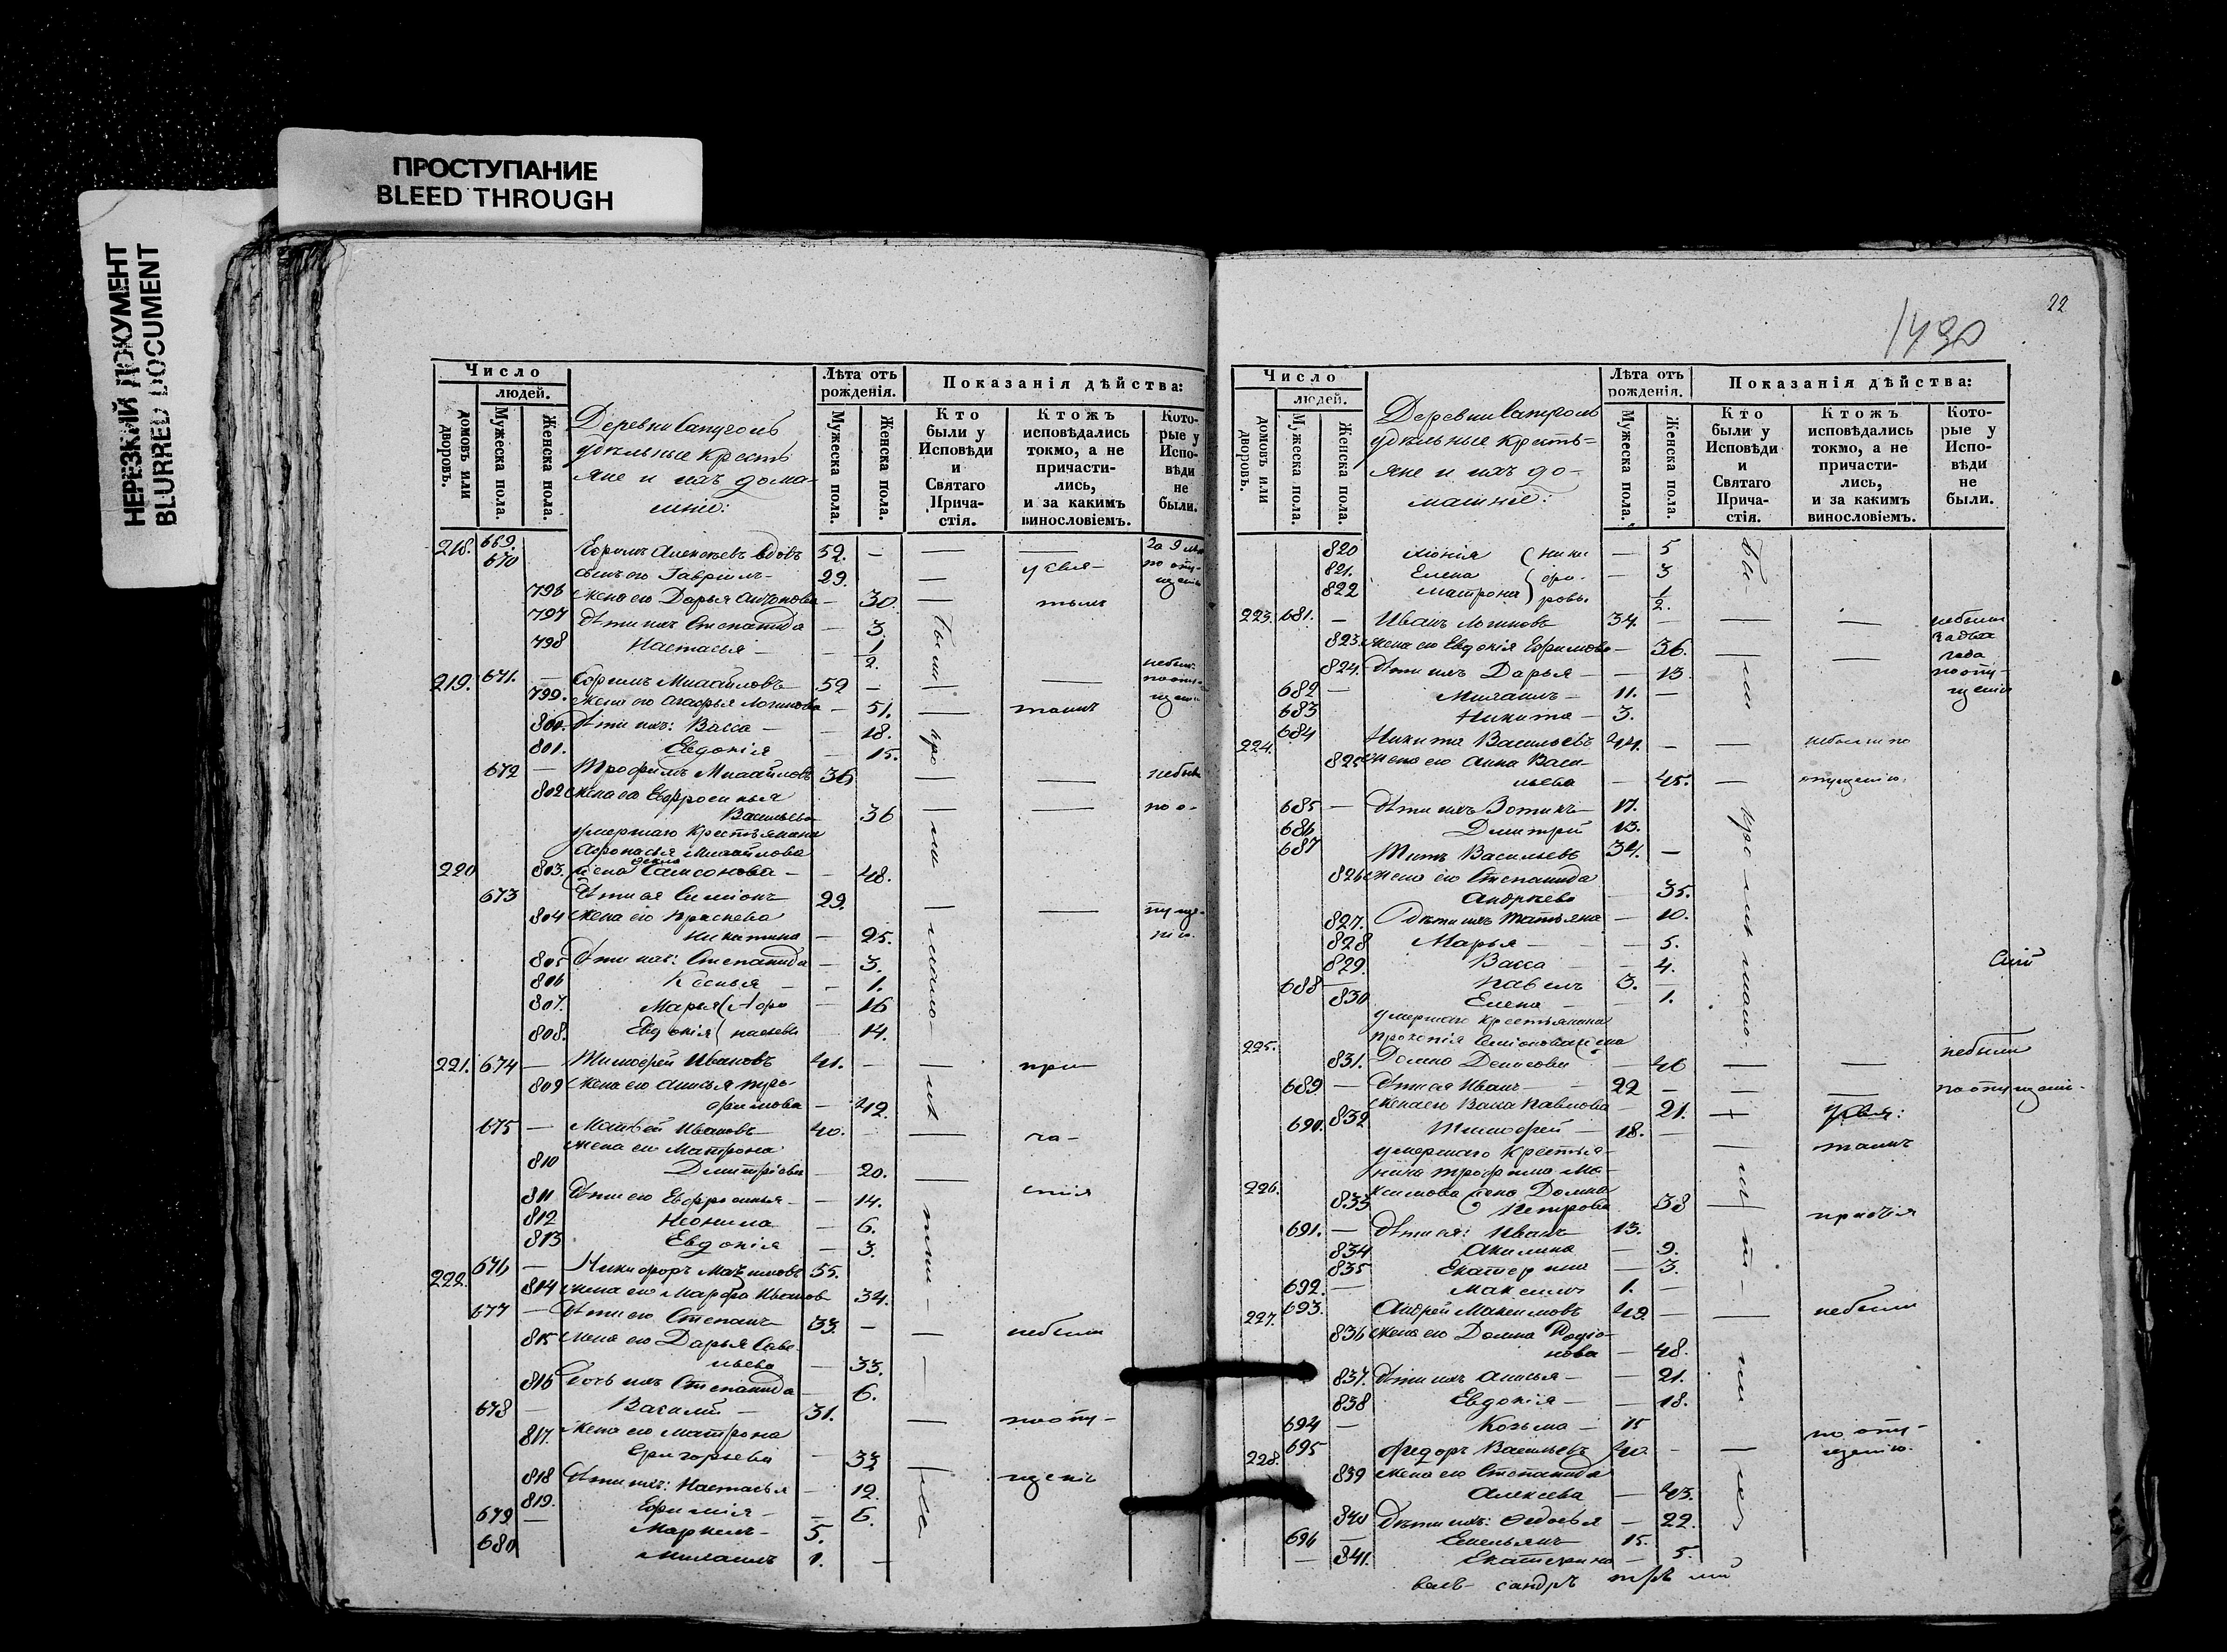 ПРОСТУПАНИЕ
BLEED THROUGH
НЕРЕЗКИЙ ДОКУМЕНТ
BLURRED DOCUMENT
Число
людей.
домовъ или дворовъ.
Мужеска пола.
Женска пола.
Деревни
удѣльные кресть
яне и ихъ дома-
шніе:
Лѣта отъ рожденія.
Мужеска пола.
Женска пола.
Показанія дѣйства:
Кто были у Исповѣди и Святаго Прича-стія.
Ктожъ исповѣдались токмо, а не причасти-лись, и за какимъ винословіемъ.
Кото-рые у Испо-вѣди не были.
218. 669. Ефимъ Алексѣевъ вдовъ 52. —
670 сынъ его Гавріилъ 29.
796 жена его Дарья Антонова — 30.
797 дѣти ихъ Степанида — 3.
798 Настасья — 1/2.
219. 671. — Ефимъ Михайловъ 52 —
799. жена его Агафья Логинова — 51.
800. дѣти ихъ: Васса — 18.
801. Евдокія 15.
672 — Трофимъ Михайловъ 36
802 жена его Евфросинья
Васильева 36
умершаго крестьянина
Афонасья Михайлова
220 803. жена Самсонова — 48.
673 дѣти ея Симіонъ 29.
804 жена его Прасковья
Никитина — 25.
805 дѣти ихъ: Степанида — 3.
806 Ксенья — 1.
807. Марья (Афо — 16
808. Евдокія) насьевы 14.
221. 674 — Тимофей Ивановъ 41. —
809 жена его Анисья Тро-
фимова — 42.
675 — Матвѣй Ивановъ 40. —
810 жена его Матрона
Дмитріева — 20.
811 дѣти его Евфросинья — 14.
812 Неонила — 6.
813 Евдокія — 3.
222. 676 — Никифоръ Максимовъ 55.
814 жена его Марфа Иванов 34.
677 — дѣти его Степанъ 33. —
815 жена его Дарья Саве-
льева — 33.
816 дочь ихъ Степанида — 6.
678 — Василій — 31.
817. жена его Матрона
Григорьева — 33
818 дѣти ихъ: Настасья — 12.
819. Ефимія — 6.
679 — Маркелъ 5.
680 Михаилъ 1. —
22
1430
Число
людей.
домовъ или дворовъ.
Мужеска пола.
Женска пола.
Деревни
удѣльные кресть=
яне и ихъ до-
машніе:
Лѣта отъ рожденія.
Мужеска пола.
Женска пола.
Показанія дѣйства:
Кто были у Исповѣди и Святаго Прича-стія.
Ктожъ исповѣдались токмо, а не причасти-лись, и за какимъ винословіемъ.
Кото-рые у Испо-вѣди не были.
820 (Ники — 5
821. Елена фо- — 3
822 Матрона) ровы 1/2.
223. 681. — Иванъ Логиновъ 34. — небыли
823. жена его Евдокія Ефимова — 36. за два года
824. дѣти ихъ Дарья — 13 по опу-
682 — Михаилъ — 11. — щенію
683 Никита — 3.
224. 684 Никита Васильевъ 44. — небыли по
825 жена его Анна Васи-
льева — 45. — опущенію.
685 — дѣти ихъ Вотикъ 17.
686 Дмитрій 13.
687 Титъ Васильевъ 34. —
826 жена его Степанида
Андреева — 35.
827. дѣти ихъ Татьяна — 10.
828 Марья — 5.
829. Васса — 4.
688 — Павелъ 3. —
830 Елена — 1.
сій
умершаго крестьянина
225. Прокопія Симіонова жена
831. Домна Денисова — 46 — — небыли
689. — дѣти ея Иванъ — 22 — по опущені-
832 жена его Васса Павлова 21.
690. Тимофей — 18. —
умершаго крестья-
нина Трофима Ма-
226. ксимова жена Домна
833 Петрова 38
691. — дѣти ея: Иванъ 13.
834 Акилина — 9.
835 Екатерина — 3.
692. — Максимъ 1. —
227. 693. Андрей Максимовъ 49. — небыли
836 жена его Домна Родіо-
нова — 48.
837. дѣти ихъ Анисья — 21.
838 Евдокія — 18.
694 — Козьма — 15
по опу-
228. 695 Федоръ Васильевъ 40. — щенію.
839 жена его Степанида
Алексева — 43.
840 дѣти ихъ: Федосья — 22.
696 — Емельянъ 15.
— 841. Екатерина — 5.